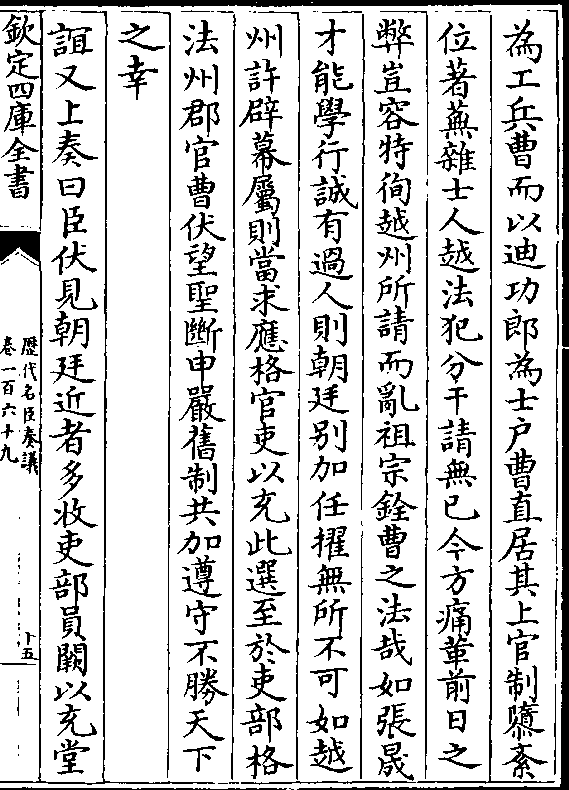 為工兵曹而以迪功郎為士户曹直居其上官制隳紊
位著蕪雜士人越法犯分干請無已今方痛革前日之
弊豈容特徇越州所請而亂祖宗銓曹之法哉如張晟
才能學行誠有過人則朝廷别加任擢無所不可如越
州許辟幕屬則當求應格官吏以充此選至於吏部格
法州郡官曹伏望聖斷申嚴舊制共加遵守不勝天下
之幸
誼又上奏曰臣伏見朝廷近者多收吏部員闕以充堂
欽定四庫全書
歴代名臣奏議
卷一百六十九
十五